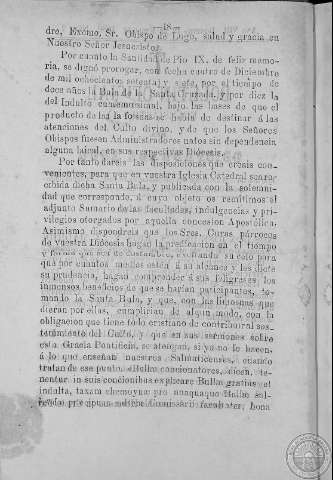 —18—
dre, Excmo. Sr. Obispo de Lugo, salud y gracia en
Nuestro Señor Jesucristo:
Por cuanto la Santidad de Pio IX. de feliz memo-
ria, se dignó prorogar, con fecha cuatro de Diciembre
de mil ochocientos setenta y siete, por el tiempo de
doce años la Bula de la Santa Cruzada, y por diez la
del Indulto cuadragesimal, bajo las bases de que el
producto de las limosnas se habia de destinar á las
atenciones del Culto divino, y de que los Señores
Obispos fuesen Administradores natos sin dependencia
alguna laical, en sus respectivas Diócesis.
Por tanto dareis las disposiciones que creais con-
venientes, para que en vuestra Iglesia Catedral sea re-
cibida dicha Santa Bula, y publicada con la solemni-
dad que corresponde, á cuyo objeto os remitimos el
adjunto Sumario de las facultades, indulgencias y pri-
vilegios otorgados por aquella concesion Apostólica.
Asimismo dispondreis que los Sres. Curas párrocos
de vuestra Diócesis hagan la predicacion en el tiempo
y forma que sea de costumbre, excitando su celo para
que por cuantos medios esten á su alcance y les dicte
su prudencia, hagan comprender á sus feligreses los
inmensos beneficios de que se harian participantes, to-
mando la Santa Bula, y que, con las limosnas que
dieran por ellas, cumplirian de algun modo, con la
obligacion que tiene todo cristiano de contribuir al sos-
tenimiento del Culto, y que en sus sermones sobre
esta Gracia Pontificia, se atengan, si ya no lo hacen,
á lo que enseñan nuestros Salmaticenses, cuando
tratan de ese punto. «Bullæ concionatores, dicen, te-
nentur in suis concionibus explicare Bullæ gratias et
indulta, taxam elemosynæ pro unaquaque Bulla sol-